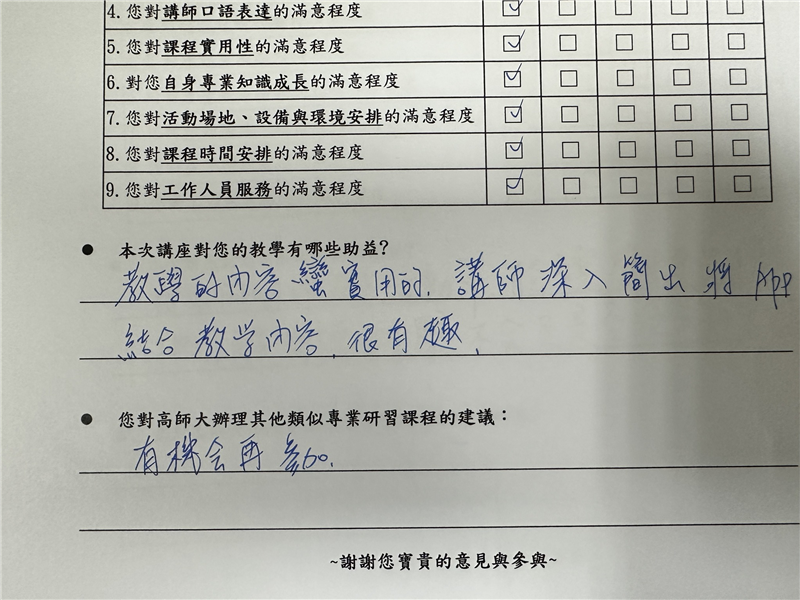 4.您對講師口語表達的滿意程度
5.您對課程實用性的滿意程度
6.對您自身專業知識成長的滿意程度
7.您對活動場地、設備與環境安排的滿意程度
8.您對課程時間安排的滿意程度
9.您對工作人員服務的滿意程度
● 本次講座對您的教學有哪些助益?
教學的內容蠻實用的,講師深入簡出將APP
結合教学內容,很有趣,
● 您對高師大辦理其他類似專業研習課程的建議:
有機会再參加.
~謝謝您寶貴的意見與參與~